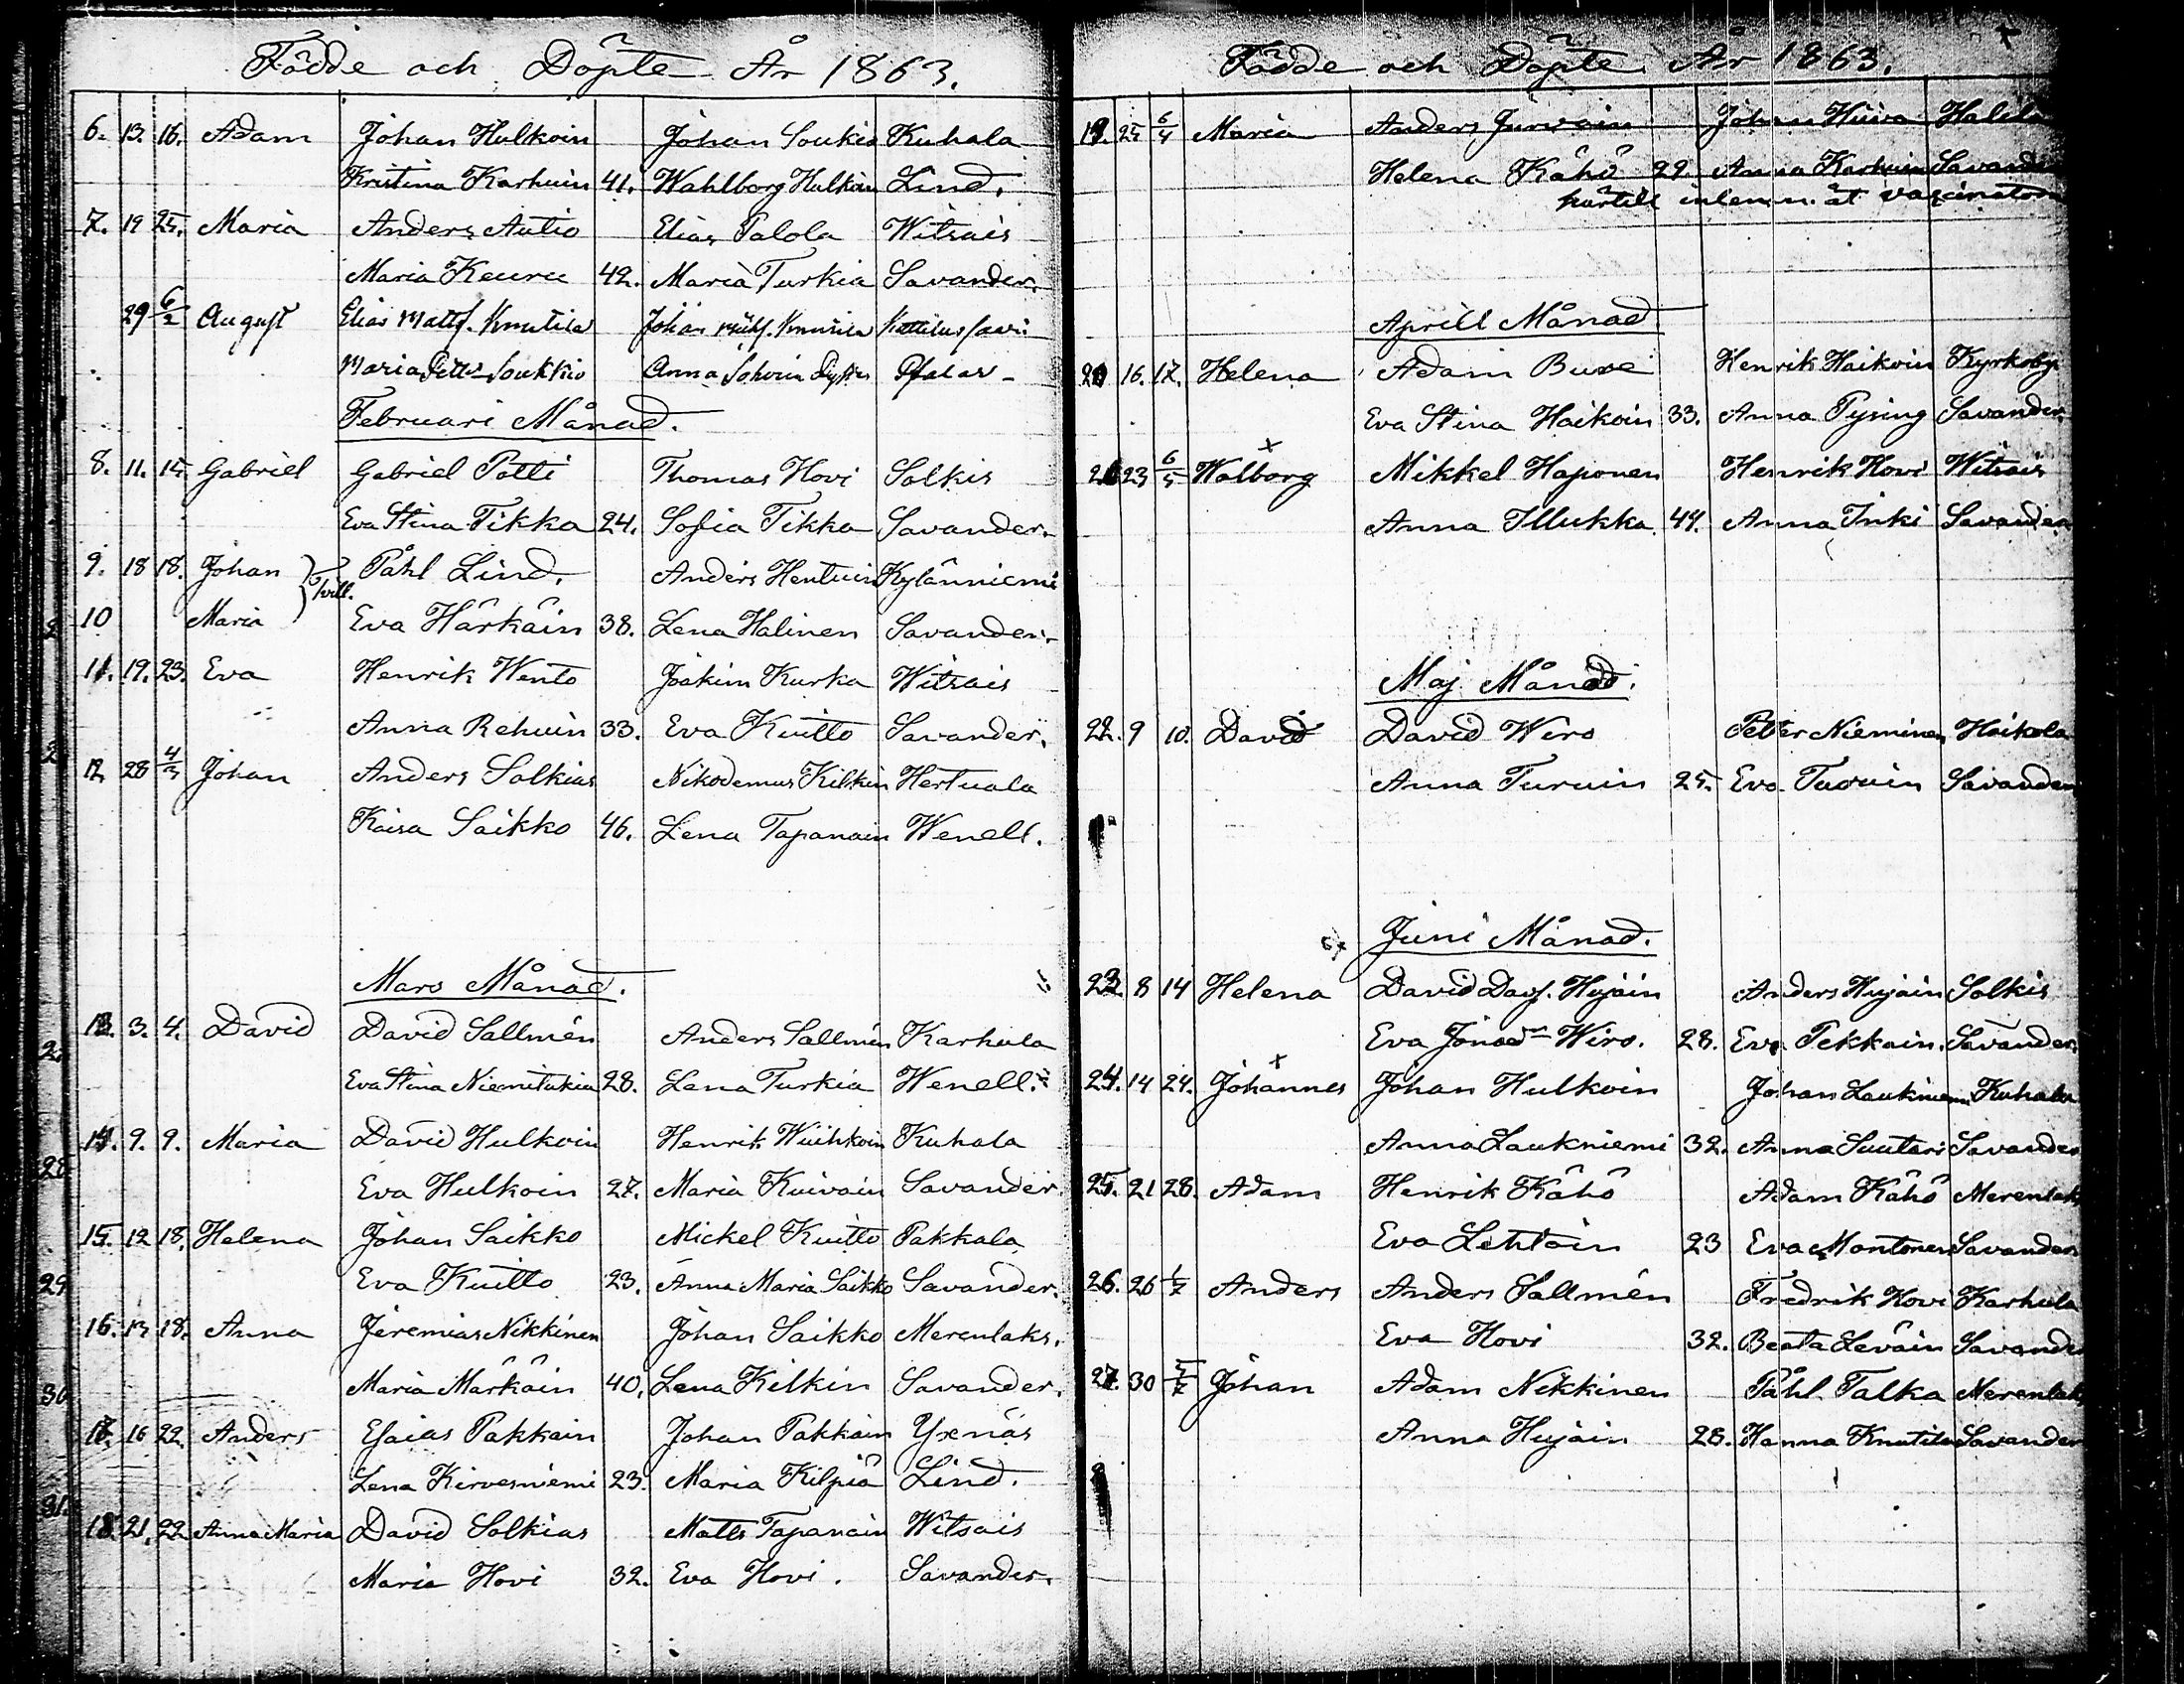 Födde och Döpte År 1863.
6. 13. 16. Adam Johan Hulkoin Johan Soukio Kuhala
Kristina Karhuin 41. Wahlborg Hulkoin Lind.
7. 19 25. Maria Anders Autio Elias Palola Witsais
Maria Keuru 42. Maria Turkia Savander.
29 6/2 August Elias Matts. Knutila Johan Knutila
Maria Soukkio Anna
Februari Månad.
8. 11. 15. Gabriel Gabriel Potti Thomas Hovi Solkis
Eva Stina Tikka 24. Sofia Tikka Savander.
9. 18 18. Johan Påhl Lind. Anders Hentuin Kylänniemi
tvill.
10 Maria Eva Härkäin 38. Lena Halinen Savander.
11. 19. 23. Eva Henrik Wento Joakim Kurka Witsais
Anna Rehuin 33. Eva Kuitto Savander.
12 28 4/3 Johan Anders Solkias Nikodemus Kilkin Hertuala
Kaisa Saikko 46. Lena Tapanain Wenell.
Mars Månad.
13. 3. 4. David David Sallmén Anders Sallmén Karhula
Eva Stina Niemitukia 28. Lena Turkia Wenell.
14. 9. 9. Maria David Hulkoin Henrik Wiihkoin Kuhala
Eva Hulkoin 27. Maria Kuivain Savander.
15. 12 18. Helena Johan Saikko Mickel Kuitto Pakkala
Eva Kuitto 23. Anna Maria Saikko Savander.
16. 13 18. Anna Jeremias Nikkinen Johan Saikko Merenlaks.
Maria Märkäin 40. Lena Kilkin Savander.
17. 16 22. Anders Esaias Pakkain Johan Pakkain Yxnäs
Lena Kirvesniemi 23. Maria Kilpiä Lind.
18. 21. 22 Anna Maria David Solkias Matts Tapanain Witsais
Maria Hovi 32. Eva Hovi. Savander.
Födde och Döpte År 1863.
19. 25 6/4 Maria Anders Jurvain Johan Huira Halila
Helena Kähö 22. Anna Karhuin Savander
härtill inlemn. åt vaccinatorn
Aprill Månad.
20 16. 17. Helena Adam Buxe Henrik Haikoin Kyrkoby
Eva Stina Haikoin 33. Anna Pysing Savander.
21 23 6/5 Walborg Mikkel Haponen Henrik Hovi Witsais
Anna Illukka 44. Anna Inki Savander
Maj Månad.
22. 9 10. David David Wiro Petter Nieminen Haikola
Anna Turuin 25. Eva Turuin Savander
Juni Månad.
23. 8 14 Helena David Davs. Hujain Anders Hujain Solkis
Eva Jonad:r Wiro. 28. Eva Pekkain. Savander.
24. 14 24. Johannes Johan Hulkoin Johan Laukniemi Kuhala
Anna Laukniemi 32. Anna Suutari Savander
25. 21 28. Adam Henrik Kähö Adam Kähö Merenlaks
Eva Lehtoin 23 Eva Montonen Savander
26. 26 1/7 Anders Anders Sallmén Fredrik Hovi Karhula
Eva Hovi 32. Beata Leväin Savander
27. 30 5/7 Johan Adam Nikkinen Påhl Talka Merenlaks
Anna Hujain 28. Hanna Knutila Savander